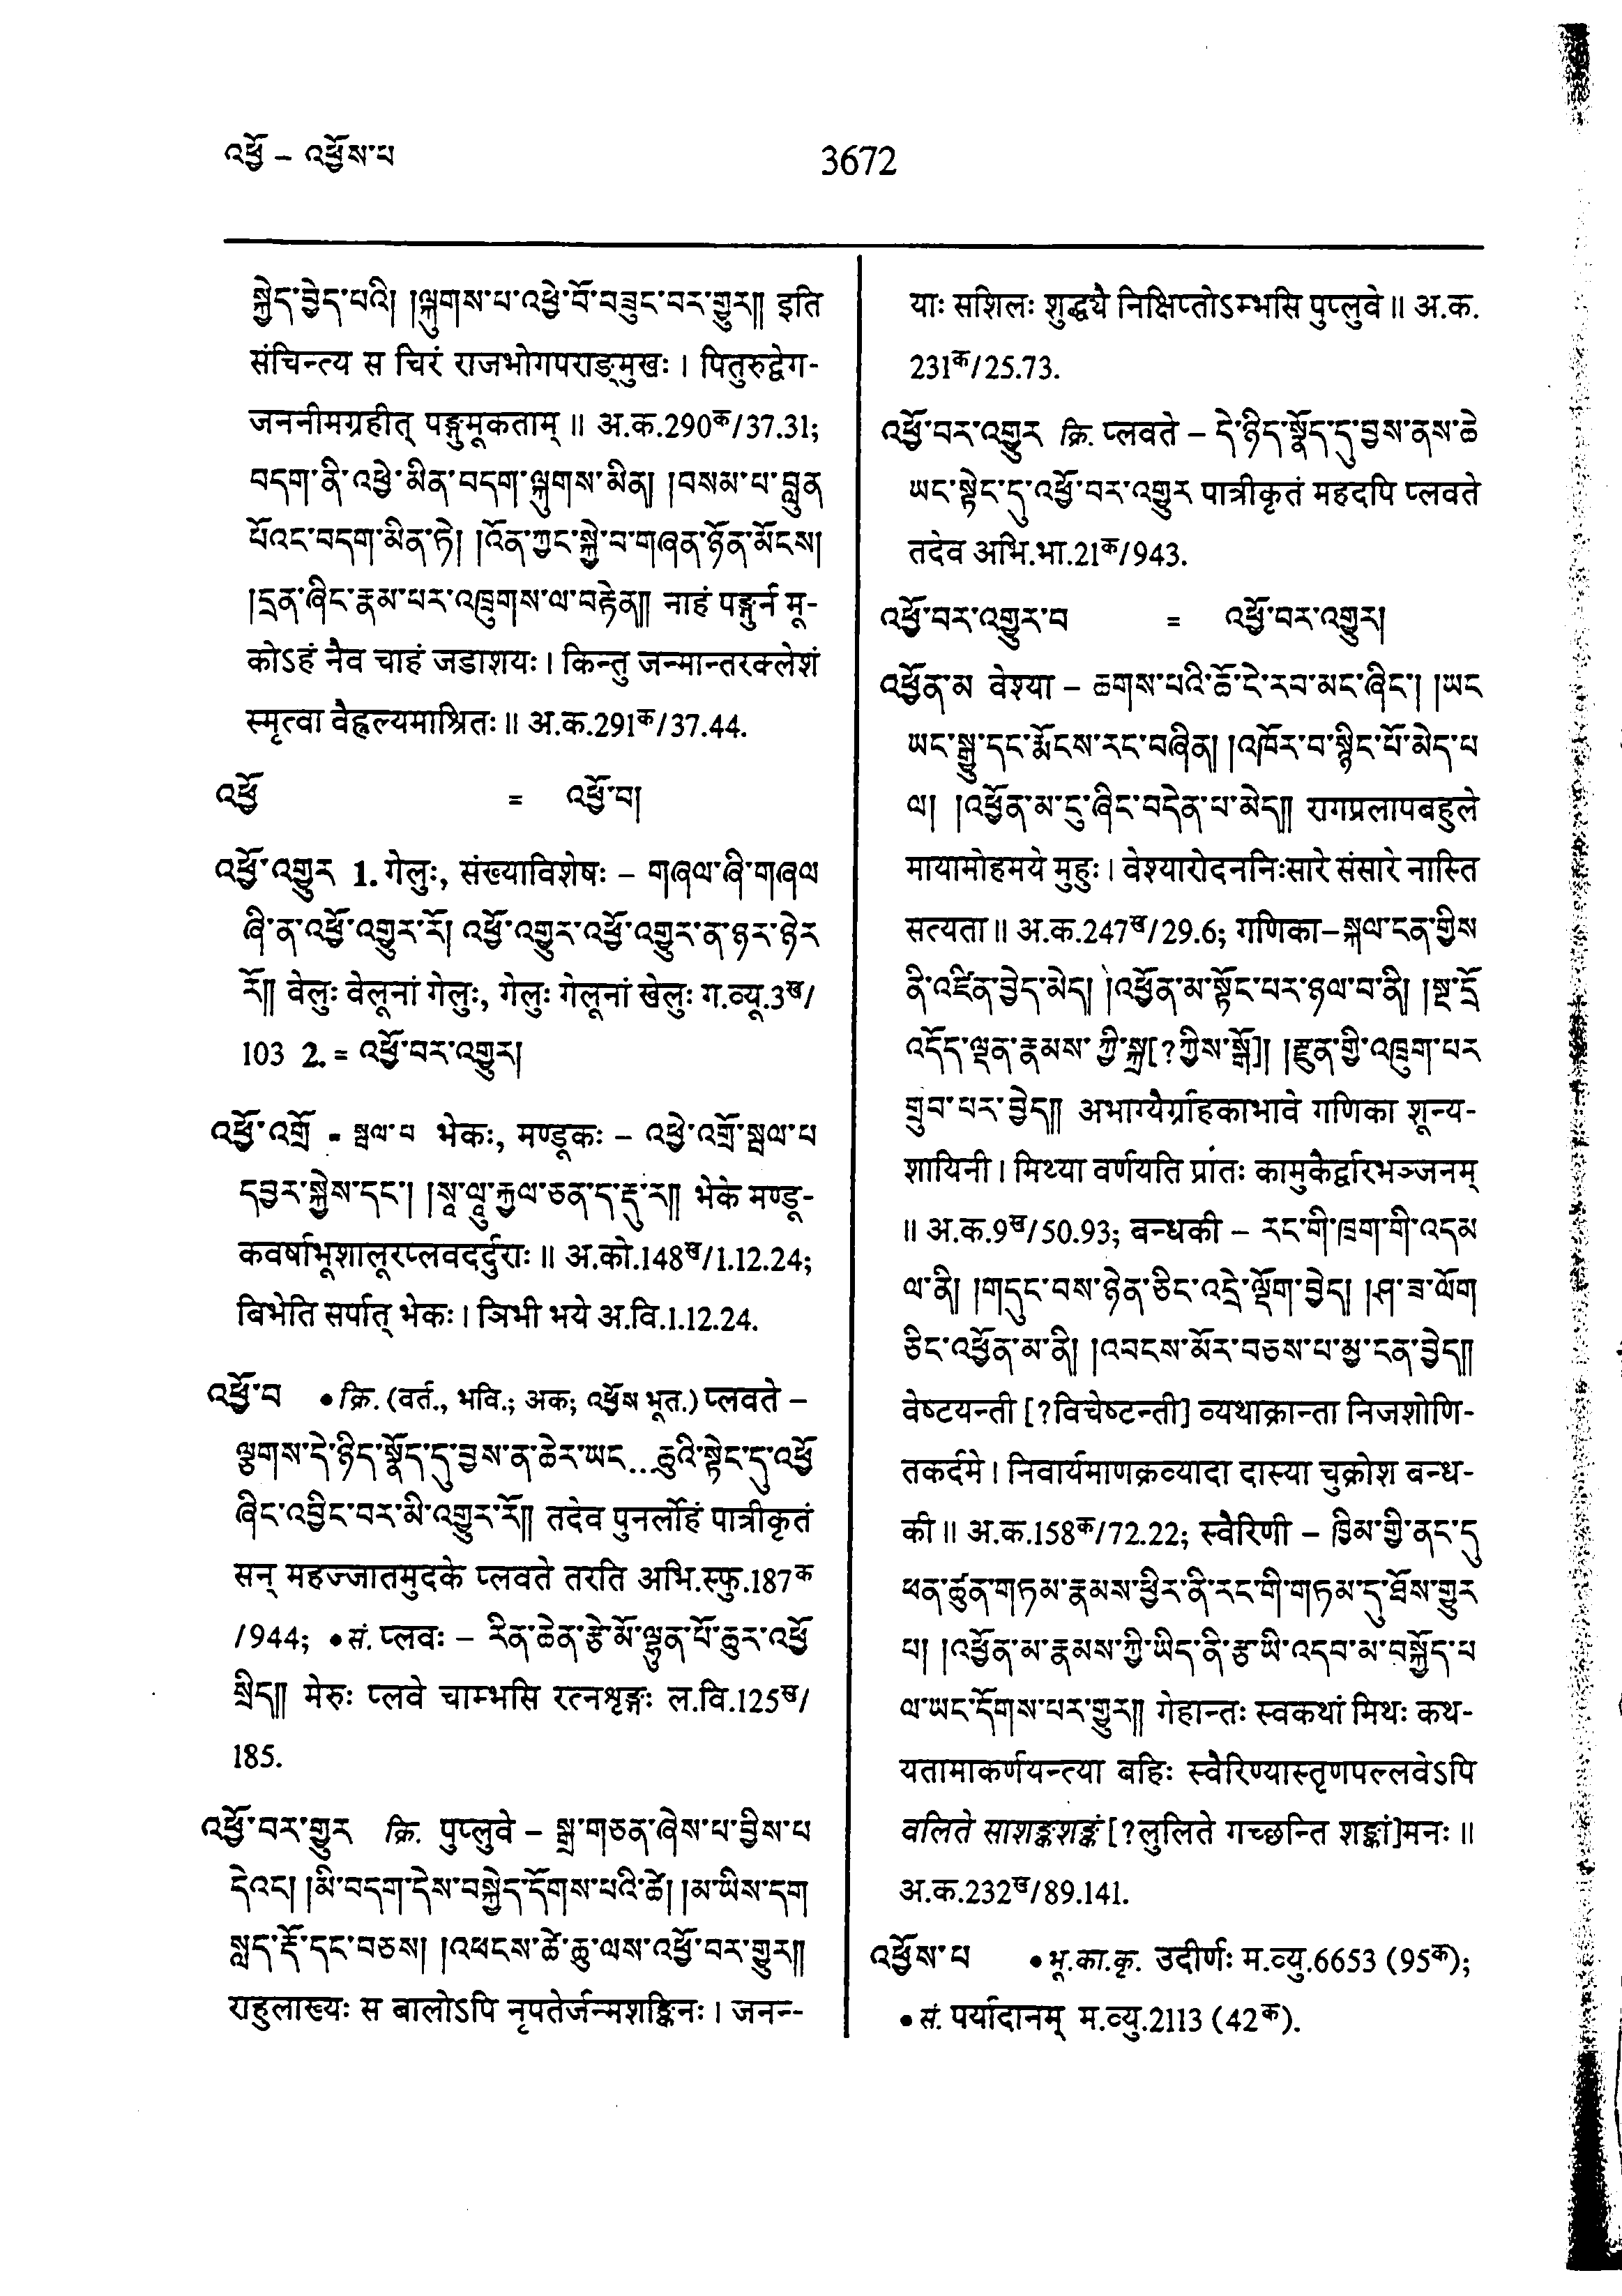 འཕྱོ – འཕྱོས་པ
3672
སྐྱེད་བྱེད་པའི། །ལྐུགས་པ་འཕྱེ་བོ་བཟུང་བར་གྱུར༎ इति
संचिन्त्य स चिरं राजभोगपराङ्मुखः । पितुरुद्वेग-
जननीमग्रहीत् पङ्गुमूकताम् ॥ अ.क.290ᵃक/37.31;
བདག་ནི་འཕྱེ་མིན་བདག་ལྐུགས་མིན། །བསམ་པ་བླུན
པོའང་བདག་མིན་ཏེ། །འོན་ཀྱང་སྐྱེ་བ་གཞན་ཉོན་མོངས།
།དྲན་ཞིང་རྣམ་པར་འཁྲུགས་ལ་བརྟེན༎ नाहं पङ्गुर्न मू-
कोऽहं नैव चाहं जडाशयः । किन्तु जन्मान्तरक्लेशं
स्मृत्वा वैह्वल्यमाश्रितः ॥ अ.क.291क/37.44.
འཕྱོ = འཕྱོ་བ།
འཕྱོ་འགྱུར 1. गेलुः, संख्याविशेषः – གཞལ་ཞི་གཞལ
ཞི་ན་འཕྱོ་འགྱུར་རོ། འཕྱོ་འགྱུར་འཕྱོ་འགྱུར་ན་ཉར་ཉེར
རོ༎ वेलुः वेलूनां गेलुः, गेलुः गेलूनां खेलुः ग.व्यू.3ख/
103 2. = འཕྱོ་བར་འགྱུར།
འཕྱོ་འགྲོ = སྦལ་པ भेकः, मण्डूकः – འཕྱེ་འགྲོ་སྦལ་པ
དབྱར་སྐྱེས་དང་། །སཱ་ལཱུ་རྐྱལ་ཅན་ད་རྡུ་ར༎ भेके मण्डू-
कवर्षाभूशालूरप्लवदर्दुराः ॥ अ.को.148ख/1.12.24;
बिभेति सर्पात् भेकः । ञिभी भये अ.वि.1.12.24.
འཕྱོ་བ • क्रि. (वर्त., भवि.; अक; འཕྱོས भूत.) प्लवते –
ལྕགས་དེ་ཉིད་སྣོད་དུ་བྱས་ན་ཆེར་ཡང...ཆུའི་སྟེང་དུ་འཕྱོ
ཞིང་འབྱིང་བར་མི་འགྱུར་རོ༎ तदेव पुनर्लोहं पात्रीकृतं
सन् महज्जातमुदके प्लवते तरति अभि.स्फु.187क
/944; • सं. प्लवः – རིན་ཆེན་རྩེ་མོ་ལྷུན་པོ་ཆུར་འཕྱོ
སྲིད༎ मेरुः प्लवे चाम्भसि रत्नशृङ्गः ल.वि.125ख/
185.
འཕྱོ་བར་གྱུར क्रि. पुप्लुवे – སྒྲ་གཅན་ཞེས་པ་བྱིས་པ
དེའང། །མི་བདག་དེས་བསྐྱེད་དོགས་པའི་ཚེ། །མ་ཡིས་དག
སླད་རྡོ་དང་བཅས། །འཕངས་ཚེ་ཆུ་ལས་འཕྱོ་བར་གྱུར༎
राहुलाख्यः स बालोऽपि नृपतेर्जन्मशङ्किनः । जनन्-
याः सशिलः शुद्ध्यै निक्षिप्तोऽम्भसि पुप्लुवे ॥ अ.क.
231क/25.73.
འཕྱོ་བར་འགྱུར क्रि. प्लवते – དེ་ཉིད་སྣོད་དུ་བྱས་ནས་ཆེ
ཡང་སྟེང་དུ་འཕྱོ་བར་འགྱུར पात्रीकृतं महदपि प्लवते
तदेव अभि.भा.21क/943.
འཕྱོ་བར་འགྱུར་བ = འཕྱོ་བར་འགྱུར།
འཕྱོན་མ वेश्या – ཆགས་པའི་ཆོ་ངེ་རབ་མང་ཞིང་། །ཡང
ཡང་སྒྱུ་དང་རྨོངས་རང་བཞིན། །འཁོར་བ་སྙིང་པོ་མེད་པ
ལ། །འཕྱོན་མ་ངུ་ཞིང་བདེན་པ་མེད༎ रागप्रलापबहुले
मायामोहमये मुहुः । वेश्यारोदननिःसारे संसारे नास्ति
सत्यता ॥ अ.क.247ख/29.6; गणिका – སྐལ་ངན་གྱིས
ནི་འཛིན་བྱེད་མེད། །འཕྱོན་མ་སྟོང་པར་ཉལ་བ་ནི། །སྔ་དྲོ
འདོད་ལྡན་རྣམས་ ཀྱི་སྐྲ[?ཀྱིས་སྒོ]། །རྫུན་གྱི་འཁྲུག་པར
གྲུབ་པར་བྱེད༎ अभाग्यैर्ग्राहकाभावे गणिका शून्य-
शायिनी । मिथ्या वर्णयति प्रातः कामुकैर्द्वारभञ्जनम्
॥ अ.क.9ख/50.93; बन्धकी – རང་གི་ཁྲག་གི་འདམ
ལ་ནི། །གདུང་བས་ཉེན་ཅིང་འདྲེ་ལྡོག་བྱེད། །ཤ་ཟ་ལོག
ཅིང་འཕྱོན་མ་ནི། །འབངས་མོར་བཅས་པ་མྱ་ངན་བྱེད༎
वेष्टयन्ती [?विचेष्टन्ती] व्यथाक्रान्ता निजशोणि-
तकर्दमे । निवार्यमाणक्रव्यादा दास्या चुक्रोश बन्ध-
की ॥ अ.क.158क/72.22; स्वैरिणी – ཁྱིམ་གྱི་ནང་དུ
ཕན་ཚུན་གཏམ་རྣམས་ཕྱིར་ནི་རང་གི་གཏམ་དུ་ཐོས་གྱུར
པ། །འཕྱོན་མ་རྣམས་ཀྱི་ཡིད་ནི་རྩྭ་ཡི་འདབ་མ་བསྐྱོད་པ
ལ་ཡང་དོགས་པར་གྱུར༎ गेहान्तः स्वकथां मिथः कथ-
यतामाकर्णयन्त्या बहिः स्वैरिण्यास्तृणपल्लवेऽपि
वलिते साशङ्कशङ्कं [?लुलिते गच्छन्ति शङ्कां]मनः ॥
अ.क.232ख/89.141.
འཕྱོས་པ • भू.का.कृ. उदीर्णः म.व्यु.6653 (95क);
• सं. पर्यादानम् म.व्यु.2113 (42क).